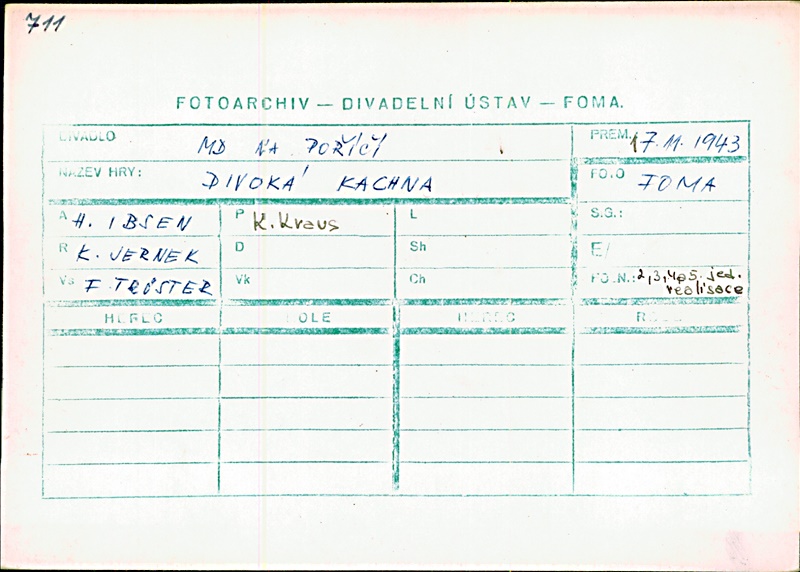 711
FOTOARCHIV — DIVADELNÍ ÚSTAV — FOMA.
DIVADLO MD NA POŘÍČÍ PREM. 17.11.1943
NÁZEV HRY: DIVOKÁ KACHNA FOTO FOMA
A H. IBSEN P K. Kraus L S.G.:
R K. JERNEK D Sh E/
Vs F. TRÖSTER Vk Ch FO.N.: 2,3,4,5. jed.
realisace
HEREC ROLE HEREC ROLE